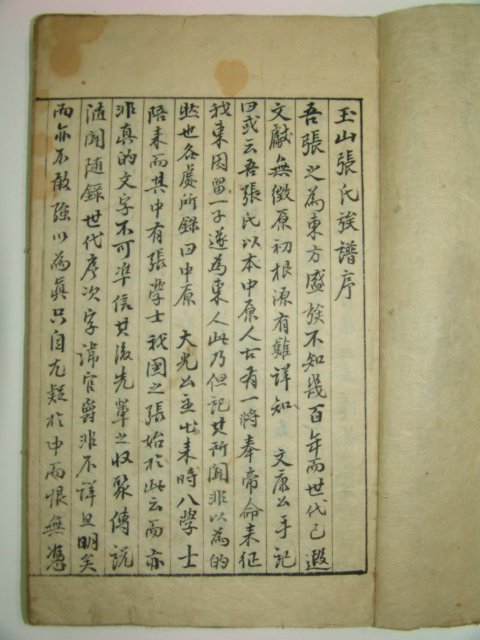 玉山張氏族譜序
吾張之為東方盛族不知幾百年而世代已遐
文獻無徵原初根源有難詳知 文康公手記
曰或云吾張氏以本中原人古有一將奉帝命來征
我東因留一子遂為東人此乃但記其所聞非以為的
然也各處所錄曰中原 大元公主出来時八學士
陪来而其中有張學士我國之張始於此云而亦
非真的文字不可準信其後先輩之收聚傳說
隨聞随錄世代序次字諱官爵非不詳且明矣
而亦不敢強以為真只自尤疑於中而恨無憑